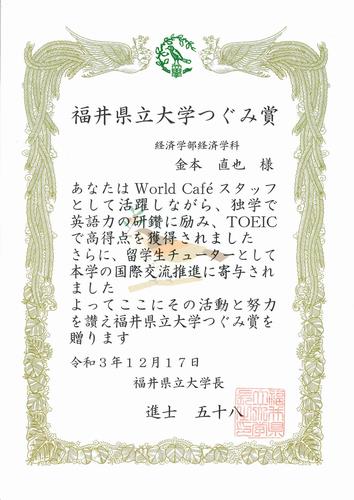 福井県立大学つぐみ賞
経済学部経済学科
金本　直也　様
あなたは World Café スタッフ
として活躍しながら、独学で
英語力の研鑽に励み、TOEIC
で高得点を獲得されました
さらに、留学生チューターとして
本学の国際交流推進に寄与され
ました
よってここにその活動と努力
を讃え福井県立大学つぐみ賞を
贈ります
令和３年１２月１７日
福井県立大学長
進士　五十八